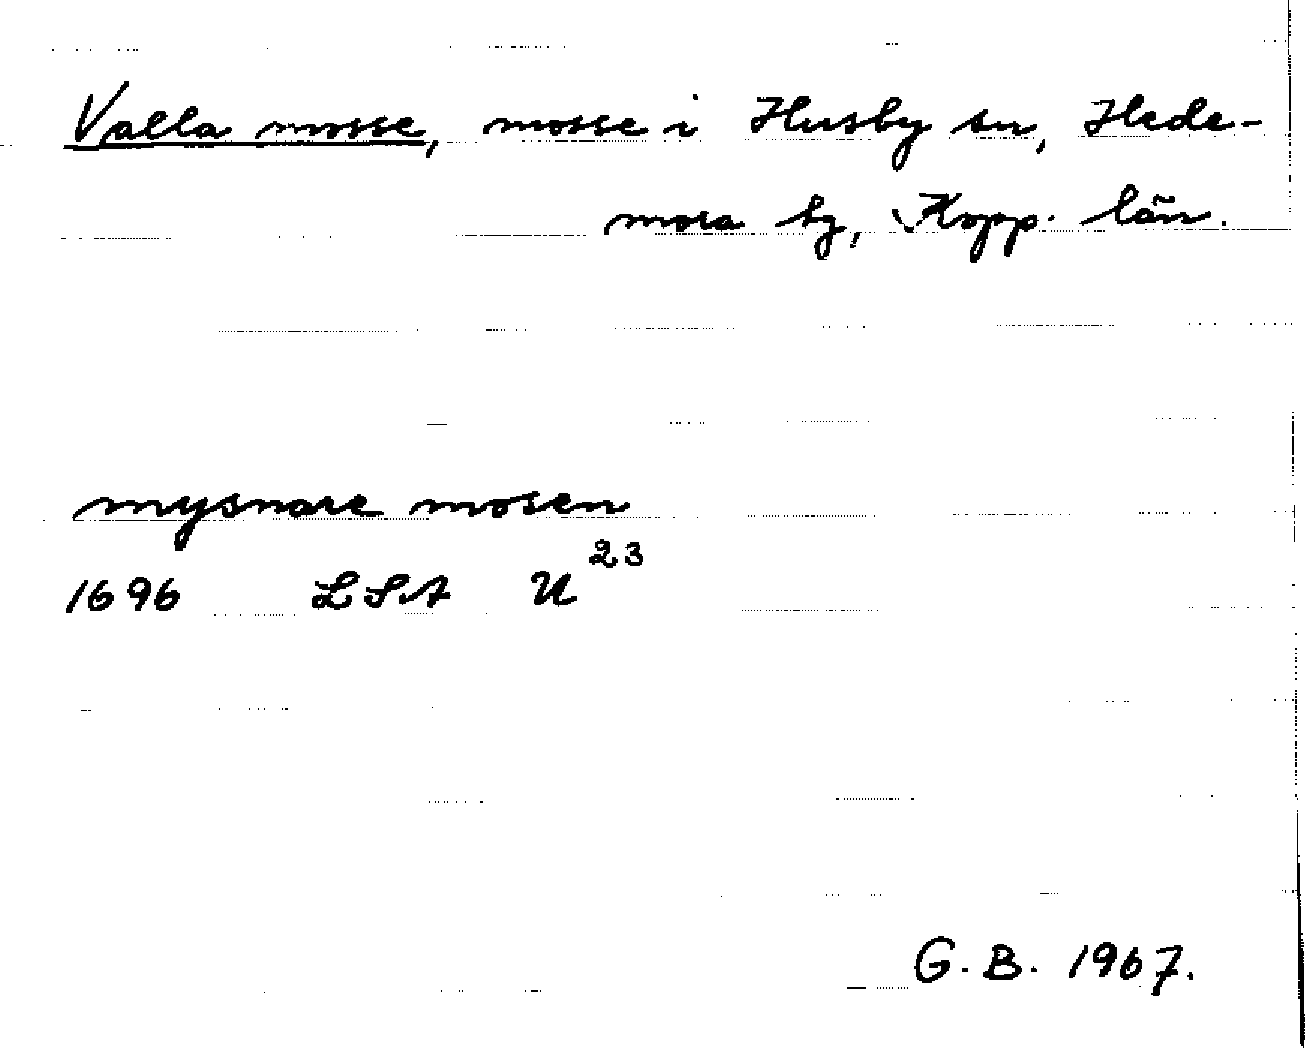 Valla mosse, mosse i Husby sn, Hede-
mora tg, Kopp. län.
mysnare mosen
1696 LSA U23
G. B. 1967.